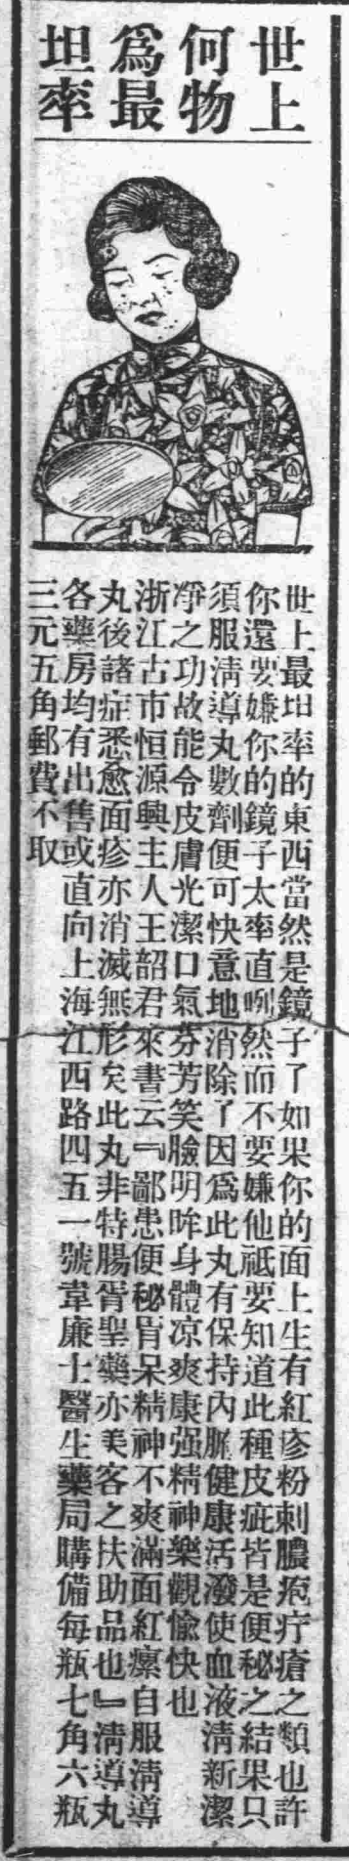 世上
何物
爲最
坦率
世上最坦率的東西當然是鏡子了如果你的面上生有紅疹粉刺膿疱疔瘡之類也許
你還要嫌你的鏡子太率直咧然而不要嫌他祗要知道此種皮疵皆是便秘之結果只
須服清導丸數劑便可快意地消除了因爲此丸有保持內臟健康活潑使血液清新潔
凈之功故能令皮膚光潔口氣芬芳笑臉明眸身體凉爽康强精神樂觀愉快也
浙江古市恒源興主人王韶君來書云『鄙患便秘胃呆精神不爽滿面紅瘰自服清導
丸後諸症悉愈面疹亦消滅無形矣此丸非特腸胃聖藥亦美容之扶助品也』清導丸
各藥房均有出售或直向上海江西路四五一號韋廉士醫生藥局購備每瓶七角六瓶
三元五角郵費不取